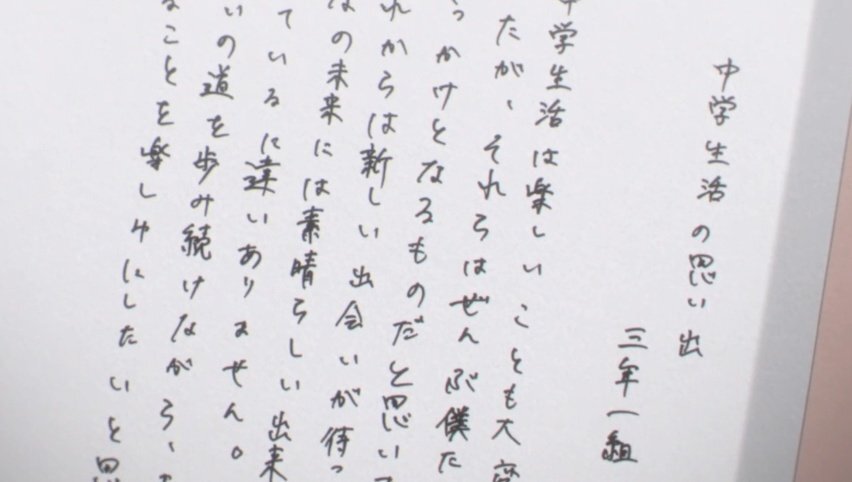 中学生活の思い出
三年一組
中学生活は楽しいことも大変
たが、それらはぜんぶ僕た
っかけとなるものだと思いま
れからは新しい出会いが待っ
なの未来には素晴らしい出来
ているに違いありません。
いの道を歩み続けながら、
ることを楽しみにしたいと思